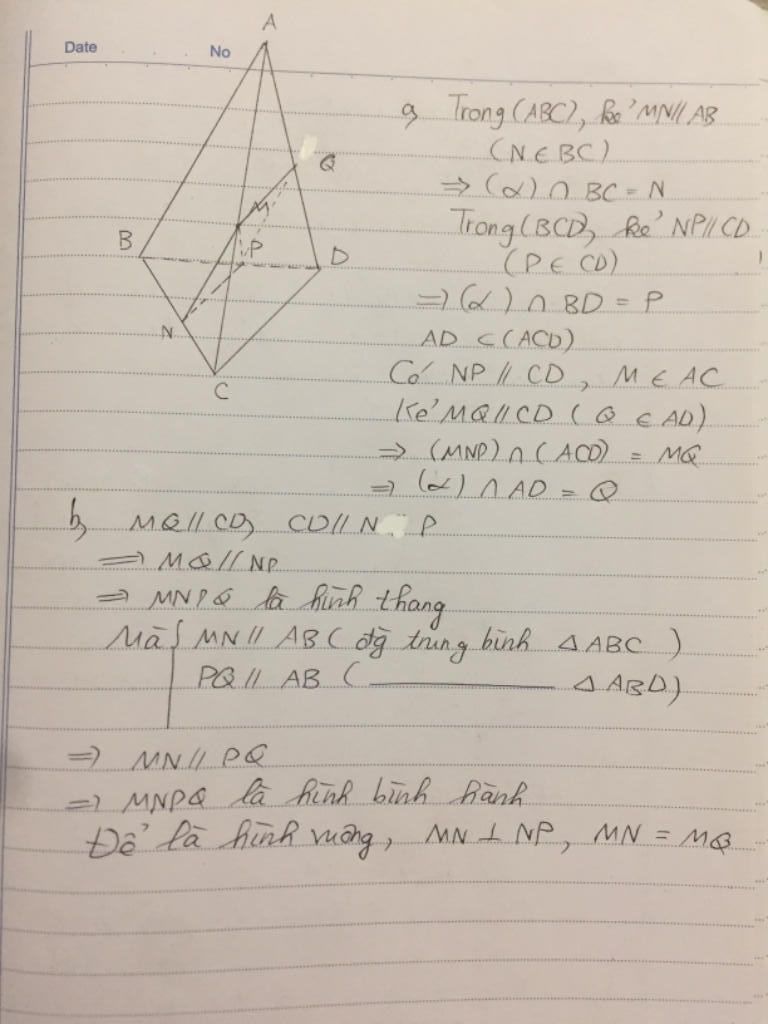 Date No
A
Q
M
B
P
D
N
C
a, Trong (ABC), kẻ MN // AB
(N ∈ BC)
⇒ (α) ∩ BC = N
Trong (BCD), kẻ NP // CD
(P ∈ CD)
⇒ (α) ∩ BD = P
AD ⊂ (ACD)
Có NP // CD, M ∈ AC
Kẻ MQ // CD (Q ∈ AD)
⇒ (MNP) ∩ (ACD) = MQ
⇒ (α) ∩ AD = Q
b, MQ // CD, CD // N P
⇒ MQ // NP
⇒ MNPQ là hình thang
Mà { MN // AB (đg trung bình △ABC)
PQ // AB ( ——— △ABD)
⇒ MN // PQ
⇒ MNPQ là hình bình hành
Để là hình vuông, MN ⊥ NP, MN = MQ